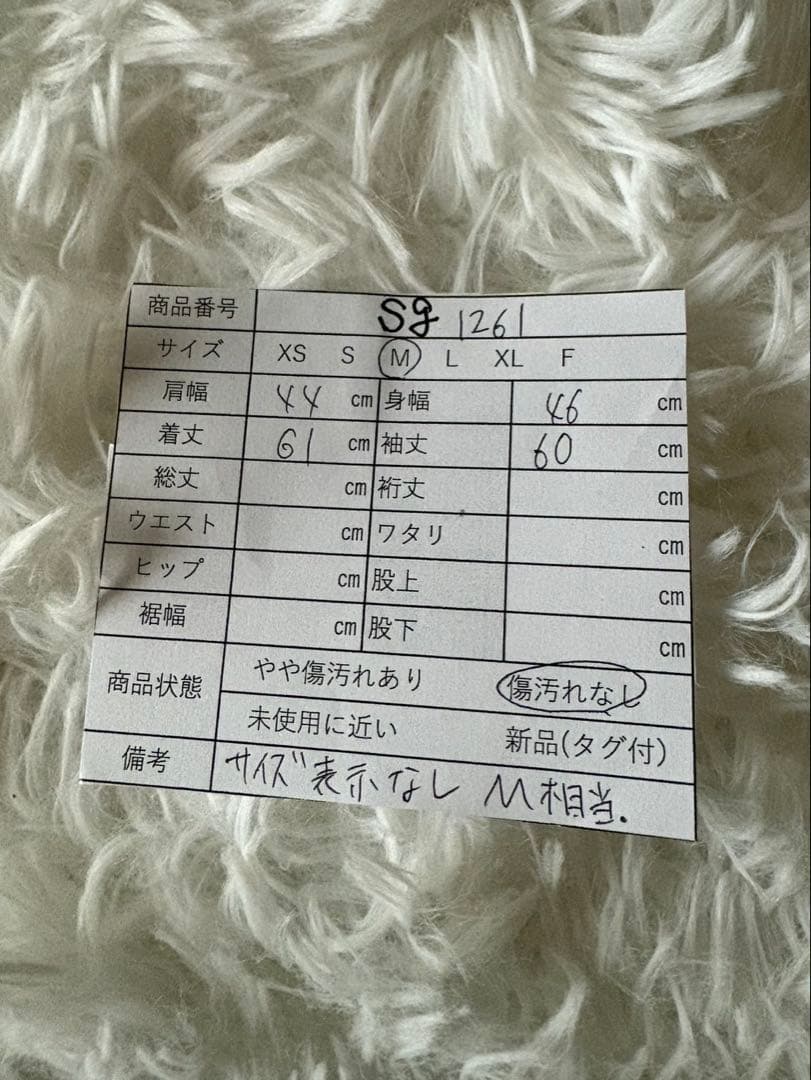 商品番号 Sg 1261
サイズ XS S M L XL F
肩幅 44 cm 身幅 46 cm
着丈 61 cm 袖丈 60 cm
総丈 cm 裄丈 cm
ウエスト cm ワタリ cm
ヒップ cm 股上 cm
裾幅 cm 股下 cm
商品状態 やや傷汚れあり 傷汚れなし
未使用に近い 新品(タグ付)
備考 サイズ表示なし M相当.